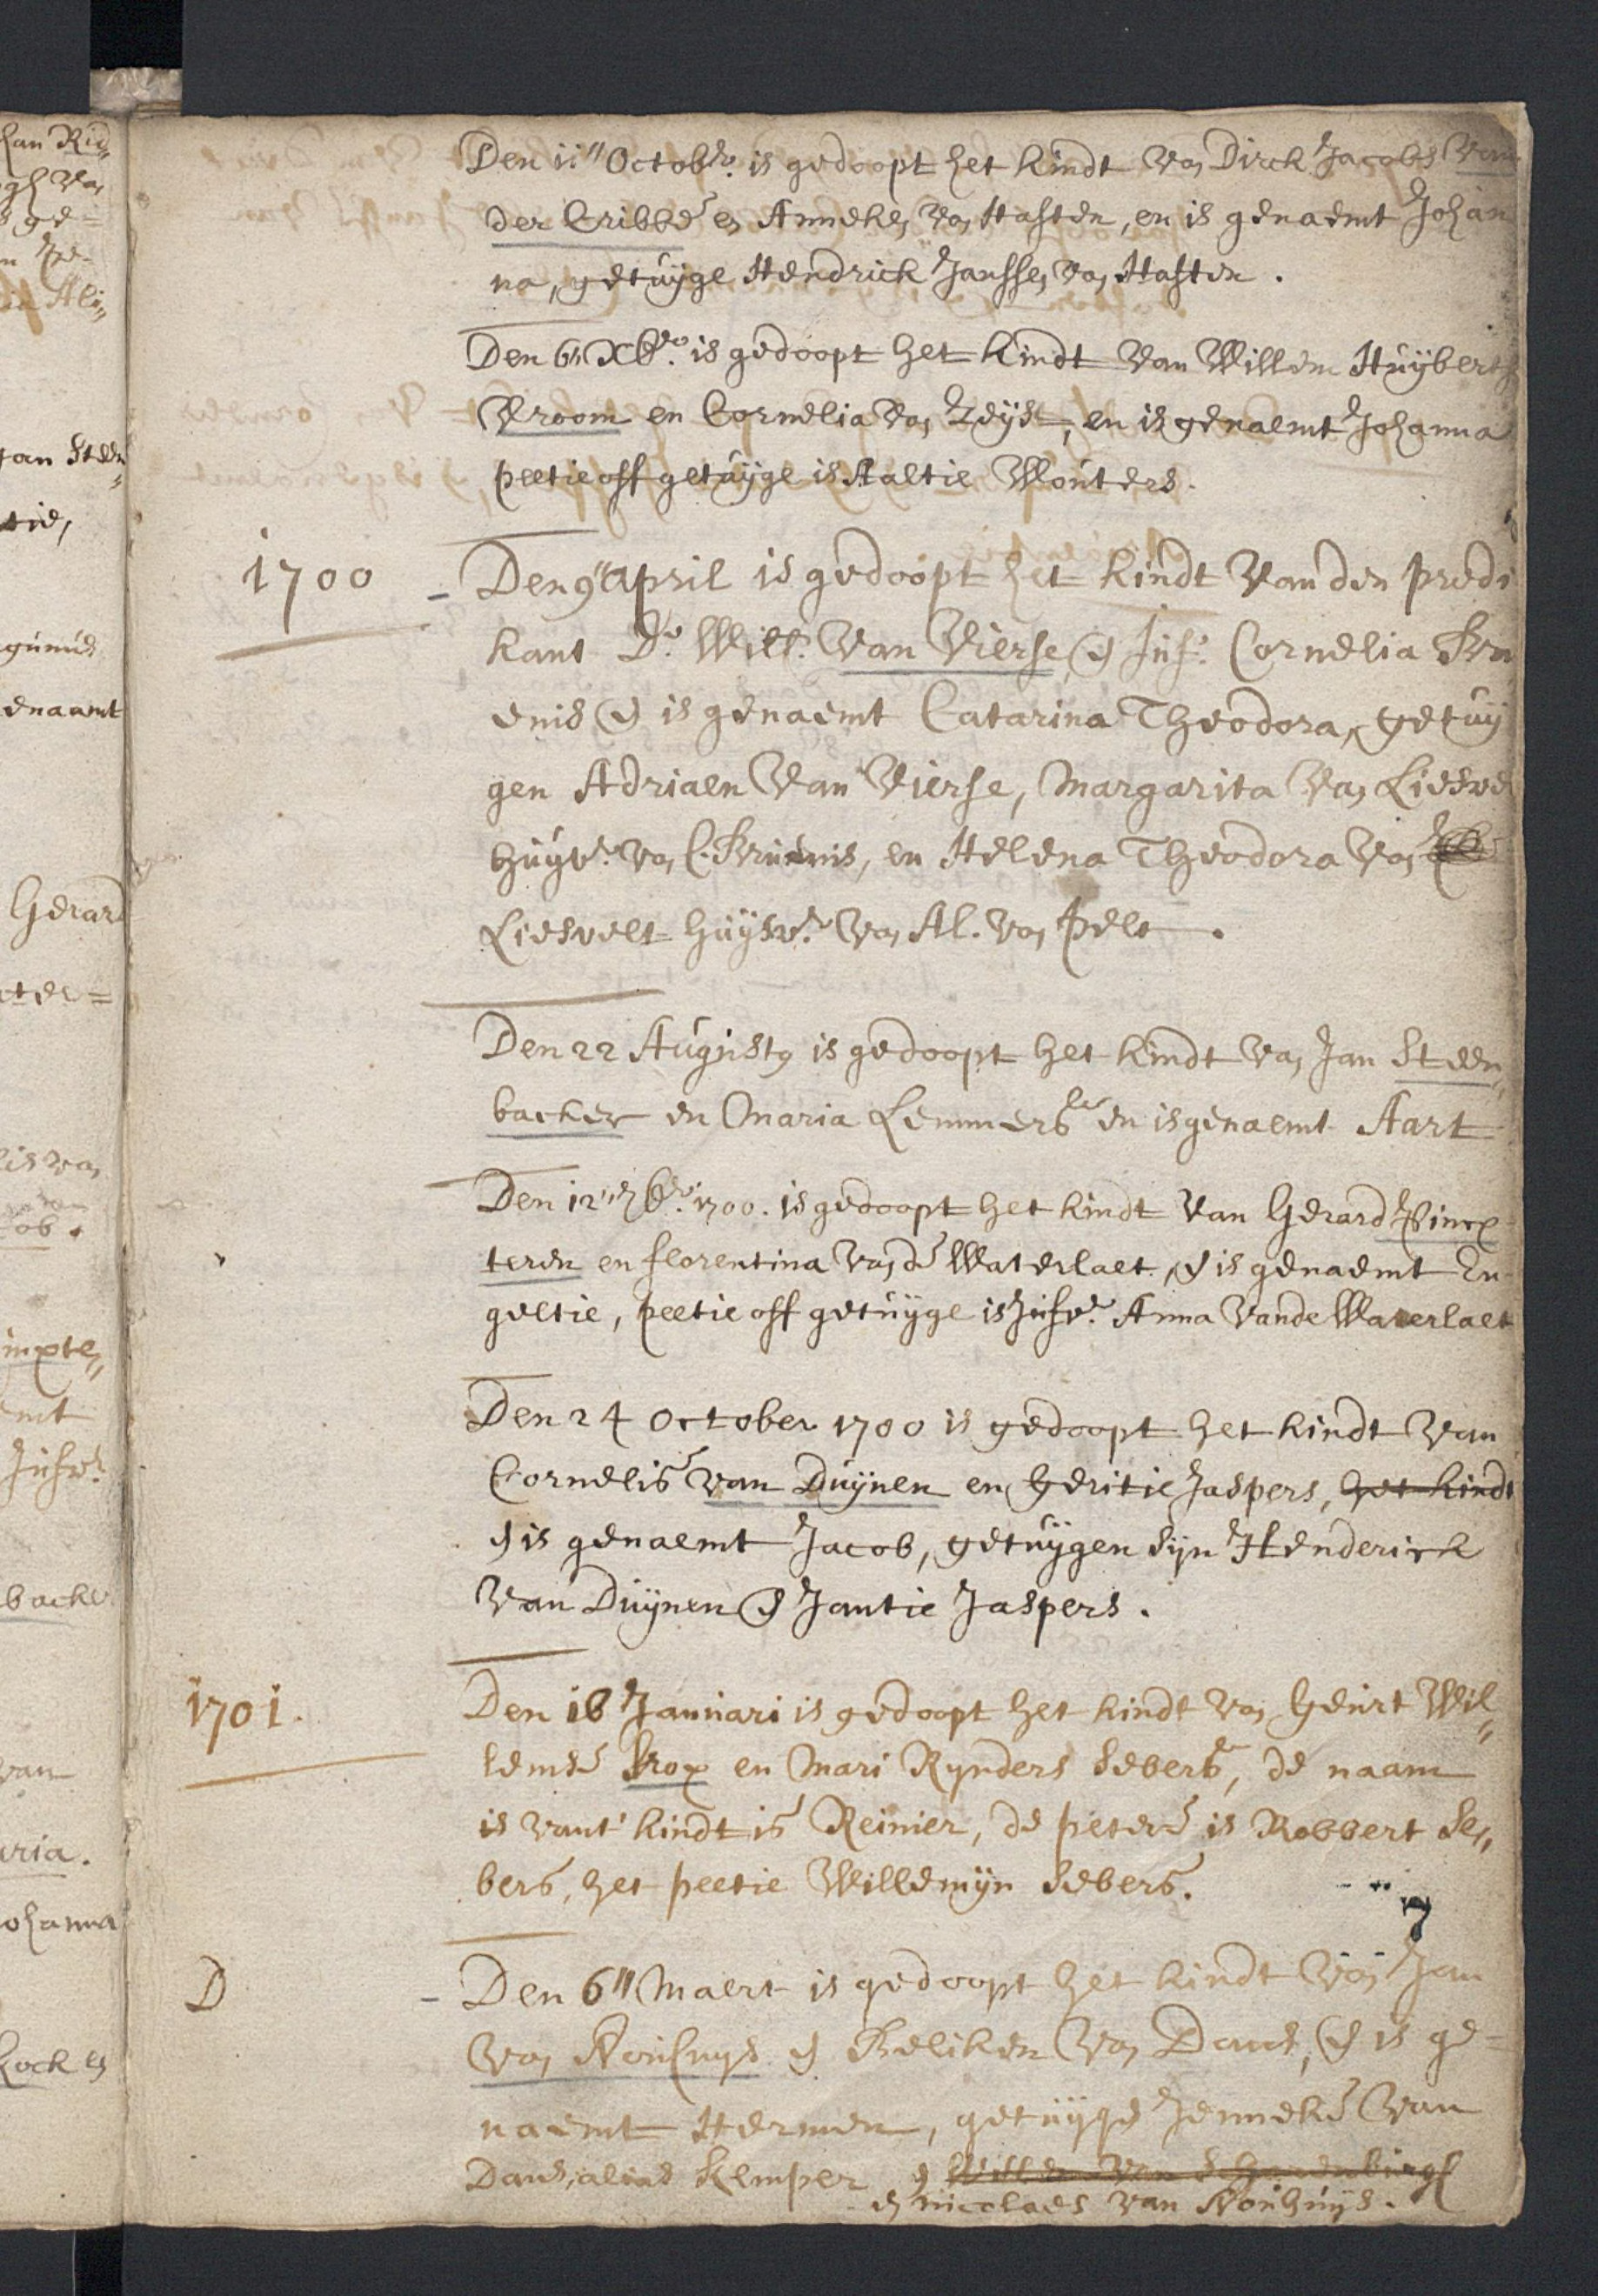 Den 11" Octobr. is gedoopt het kindt van Dirck Jacobs van
der Cribbe en Anneke van Haften, en is genaemt Johan
na, getuyge Hendrick Jansse van Haften.
Den 6" Xbr. is gedoopt het kindt van Willem Huyberts
Vroom en Cornelia van Zeyst, en is genaemt Johanna
peetie off getuyge is Aaltie Wouters.
1700
Den 9" April is gedoopt het kindt van den predi
kant Do. Will. van Vierse en Juf. Cornelia Bru
enis en is genaemt Catarina Theodora, getuy
gen Adriaen van Vierse, Margarita van Liesve
huyv. van C. Bruenis, en Helena Theodora van
Liesvelt huysv. van Al. van Pelt.
Den 22 Augusty is gedoopt het kindt van Jan Steen„
backer en Maria Lemmers en is genaemt Aart
Den 12" 7br. 1700. is gedoopt het kindt van Gerard Pinx
teren en florentina van de Waterlaet, en is genaemt En
geltie, peetie off getuyge is Jufr. Anna vande Waterlaet
Den 24 October 1700 is gedoopt het kindt van
Cornelis van Duynen en Geritie Jaspers, het kindt
en is genaemt Jacob, getuygen sijn Henderick
van Duynen en Jantie Jaspers.
1701.
Den 16 Januari is gedoopt het kindt van Geurt Wil„
lemse Krox en Mari Rynders Sebers, de naam
is vant kindt is Reinier, de peter is Robbert Se„
bers, het peetie Willemijn Sebers.
D
Den 6" Maert is gedoopt het kindt van Jan
van Nonhuys en Beliken van Dans, en is ge=
naemt Hermen, getuyge Jenneke van
Dans, alias Kemper en Willem van
en nicolaes van Nonhuys.